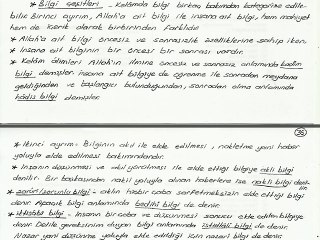 * Bilgi çeşitleri - Kelâmda bilgi birkaç bakımdan kategorize edile-
bilir. Birinci ayırım, Allah'a ait bilgi ile insana ait bilgi, hem mahiyet
hem de içerik olarak birbirinden farklıdır.
* Allah'a ait bilgi öncesiz ve sonrasızlık özelliklerine sahip iken.
* İnsana ait bilginin bir öncesi bir sonrası vardır.
* Kelâm âlimleri Allah'ın ilmine öncesiz ve sonrasız anlamında kadîm
bilgi demişler insana ait bilgiye de öğrenme ile sonradan meydana
geldiğinden ve başlangıcı bulunduğundan, sonradan olma anlamında
hâdis bilgi demişler.
36
* İkinci ayırım. Bilginin akıl ile elde edilmesi, nakletme yani haber
yoluyla elde edilmesi bakımındandır.
* İnsanın düşünmesi ve akıl yürütmesi ile elde ettiği bilgiye aklî bilgi
denilir. Bir başkasından nakil yoluyla alınan haberlere ise naklî bilgi denir.
* zarûrî/zorunlu bilgi - aklın hiçbir çaba sarfetmeksizin elde ettiği bilgi
denir. Apaçık bilgi anlamında bedîhî bilgi de denir.
* iktisâbî bilgi - İnsanın bir çaba ve düşünmesi sonucu elde edilen bilgiye
denir. Delile gereksinimi duyan bilgi anlamında istidlâlî bilgi de denir.
Nazar yani düşünme yoluyla elde edildiği için nazarî bilgi de denir.